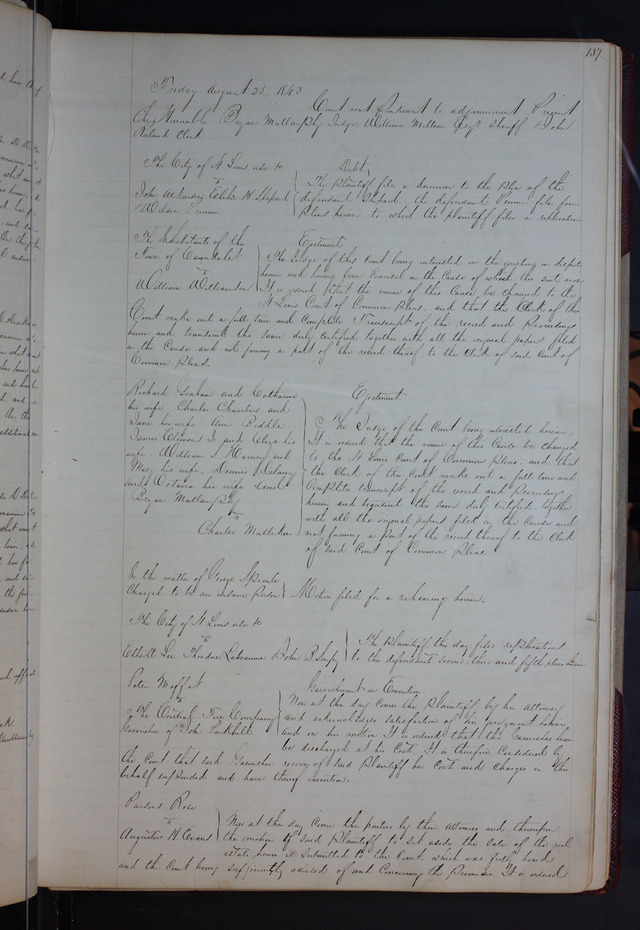 137
Friday August 25. 1843
Court met Pursuant to adjournment Present
the Honorable Bryan Mullanphy Judge William Milburn Esqr Sheriff & John
Ruland Clerk
The City of St Louis use &c
vs
John McSorley Elihu H Shepard
& Wilson Primm
Debt
The Plaintiff files a demurrer to the Plea of the
defendant Shepard the defendant Primm files four
Pleas herein to which the plaintiff files a replication
The Inhabitants of the
Town of Carondelet
vs
William Williamson
Ejectment
The Judge of this Court being interested in the question in dispute
herein and having been Counsel in the Cause of which the suit arose
It is ordered that the venue of this Cause be changed to the
St Louis Court of Common Pleas, and that the Clerk of the
Court make out a full true and Complete Transcript of the record and Proceedings
herein and transmit the same duly certified together with all the original papers filed
in the Cause and not forming a part of the record thereof to the Clerk of said Court of
Common Pleas.
Richard Graham and Catharine
his wife Charles Chambers and
Jane his wife Ann Biddle
James Clemens Jr and Eliza his
wife, William S. Harney and
Mary his wife, Dennis Delaney
and Octavia his wife and
Bryan Mullanphy
vs
Charles Mullikin
Ejectment
The Judge of the Court being interested herein
It is ordered that the venue of this Cause be changed
to the St Louis Court of Common Pleas, and that
the Clerk of the Court make out a full true and
Complete transcript of the record and Proceedings
herein and transmit the same duly certified, together
with all the original papers filed in the Cause and
not forming a part of the record thereof to the Clerk
of said Court of Common Pleas.
In the matter of George Sproule
Charged to be an insane Person
Motion filed for a rehearing herein.
The City of St Louis use &c
vs
Elliott Lee Theodore Labeaume John B Sarpy
The Plaintiff this day files replications
to the defendants second, third and fifth pleas herein
Peter Moffat
vs
The Central Fire Company
Garnishee of John
Garnishment on Execution
Now at this day comes the Plaintiff by his attorney
and acknowledges satisfaction of his judgment herein,
and on his motion It is ordered that the Garnishee herein
be discharged at his Costs, It is therefore Considered by
the Court that said Garnishee recover of said Plaintiff his Costs and Charges in this
behalf expended and have thereof execution.
Parsons Rose
vs
Augustus H Evans
Now at this day Come the parties by their attornies and thereupon
the motion of said Plaintiff to set aside the Sale of the real
estate herein is Submitted to the Court, which was fully heard
and the Court being sufficiently advised of and Concerning the Premises. It is ordered